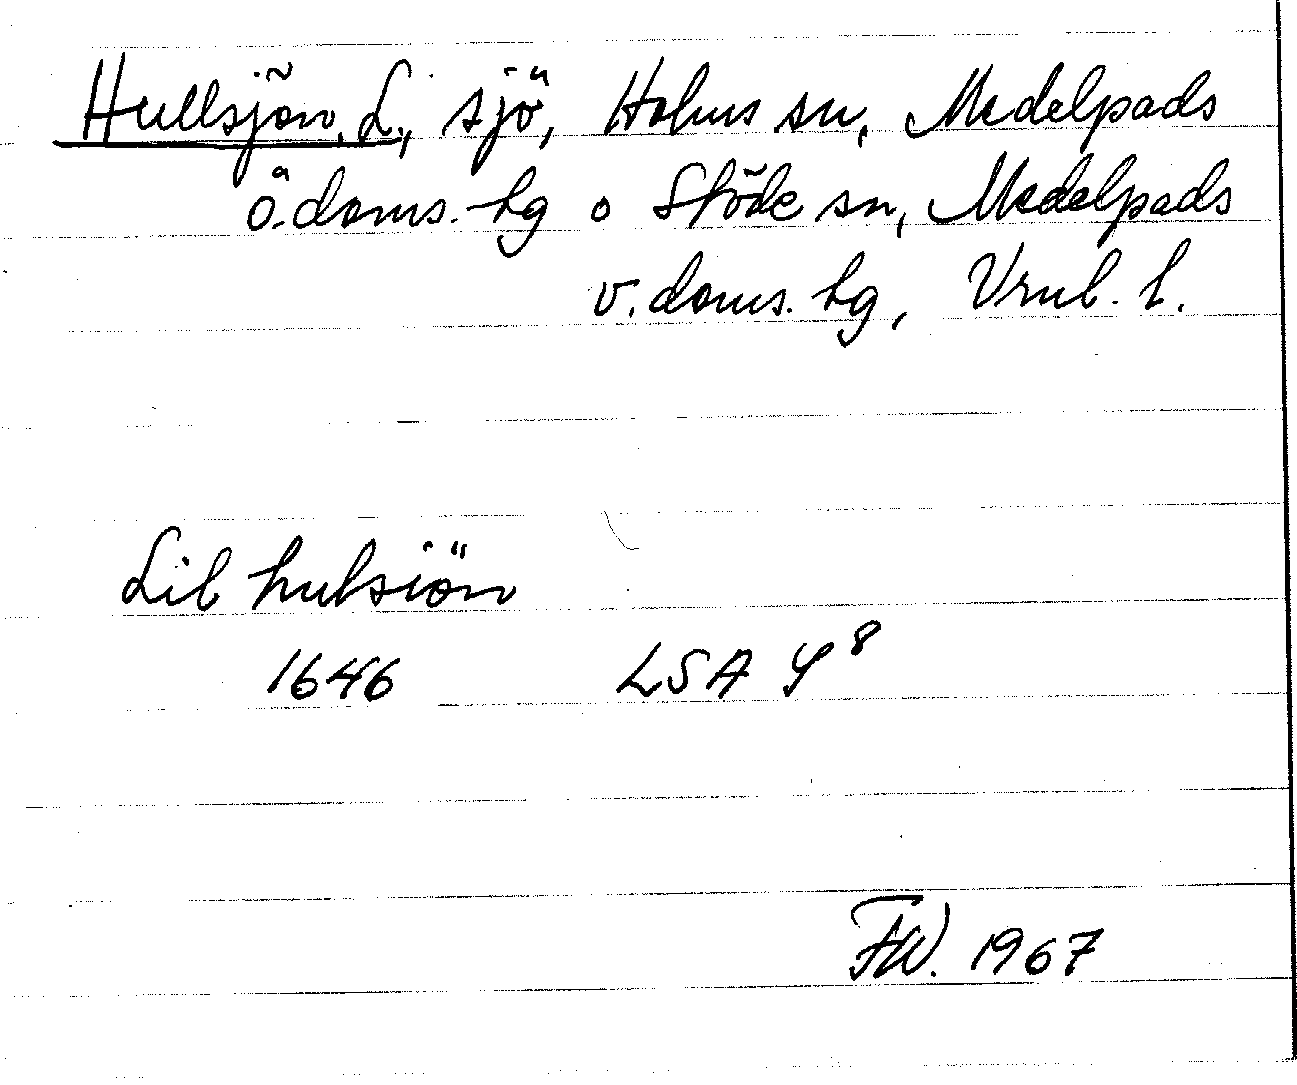 Hullsjön, L., sjö, Holms sn, Medelpads
ö. doms. hg o Stöde sn, Medelpads
v. doms. hg, Vrnl. l.
Lil hulsiön
1646 LSA Y 8
FW. 1967